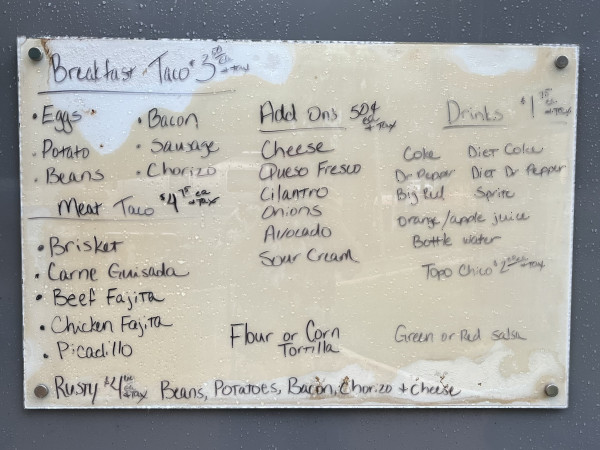 Breakfast Taco $3.00 ea + tax
• Eggs
• Potato
• Beans
• Bacon
• Sausage
• Chorizo
Meat Taco $4.75 ea + tax
• Brisket
• Carne Guisada
• Beef Fajita
• Chicken Fajita
• Picadillo
Add Ons 50¢ ea + Tax
Cheese
Queso Fresco
Cilantro
Onions
Avocado
Sour Cream
Drinks $1.75 ea + Tax
Coke Diet Coke
Dr Pepper Diet Dr Pepper
Big Red Sprite
orange/apple juice
Bottle water
Topo Chico $2.00 ea + tax
Flour or Corn
Tortilla
Green or Red salsa
Rusty $4 + tax Beans, Potatoes, Bacon, Chorizo + Cheese